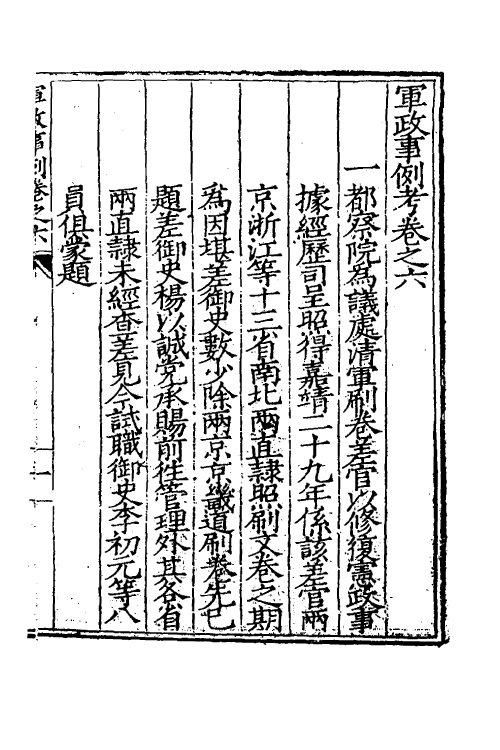 軍政事例考卷之六
一都察院爲議處清軍刷卷差官以修復憲政事
據經歷司呈照得嘉靖二十九年係該差官兩
京浙江等十三省南北兩直隷照刷文卷之期
爲因堪差御史數少除兩京京畿道刷卷先已
題差御史楊以誠党承賜前徃管理外其各省
兩直隷未經查差見今試職御史李初元等八
員俱蒙題
軍政事例卷之六
一